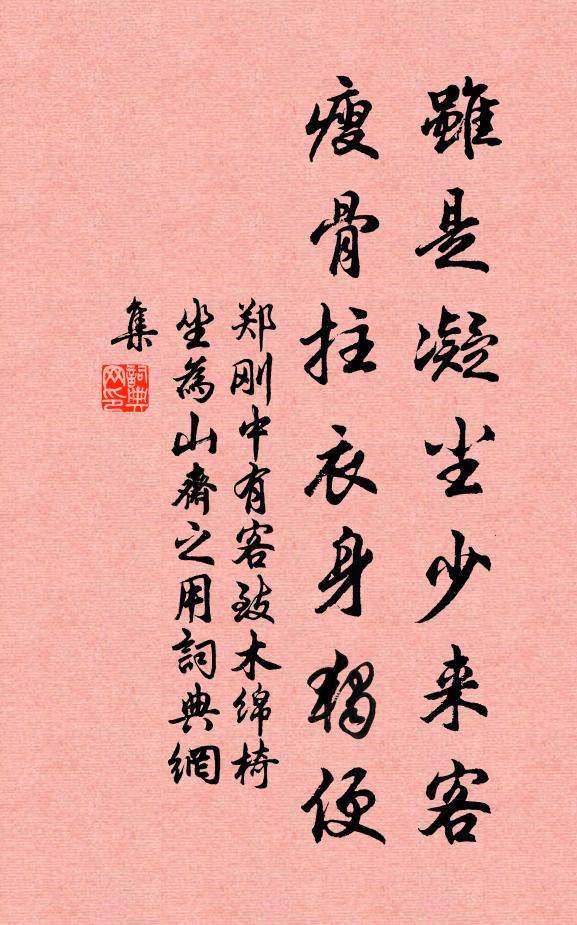 雖是凝尘少来客
瘦骨拄衣身獨便
郑刚中有客致木绵椅
坐為山齋之用詞典網
集
詞典
网印